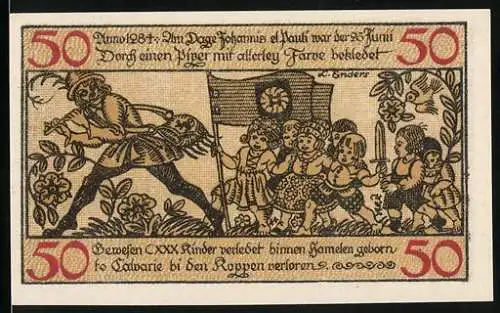 50 Anno 1284 Am Dage Johannis et Pauli war der 26 Junii 50
Dorch einen Piper mit allerley Farve bekledet
L. Enders
Gewesen CXXX Kinder verledet binnen Hamelen geborn
50 to Calvarie bi den Koppen verloren 50